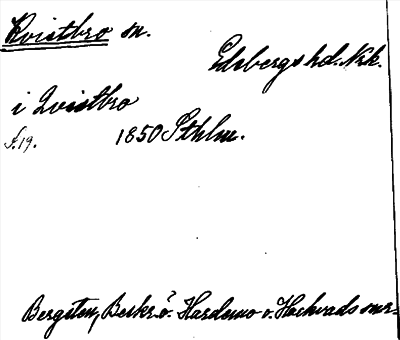 Kvistbro sn.
Edsbergs hd. Nrk.
i Qvistbro
s. 19. 1850 Sthlm.
Bergsten, Beskr. ö. Hardemo o. Hackvads snr.